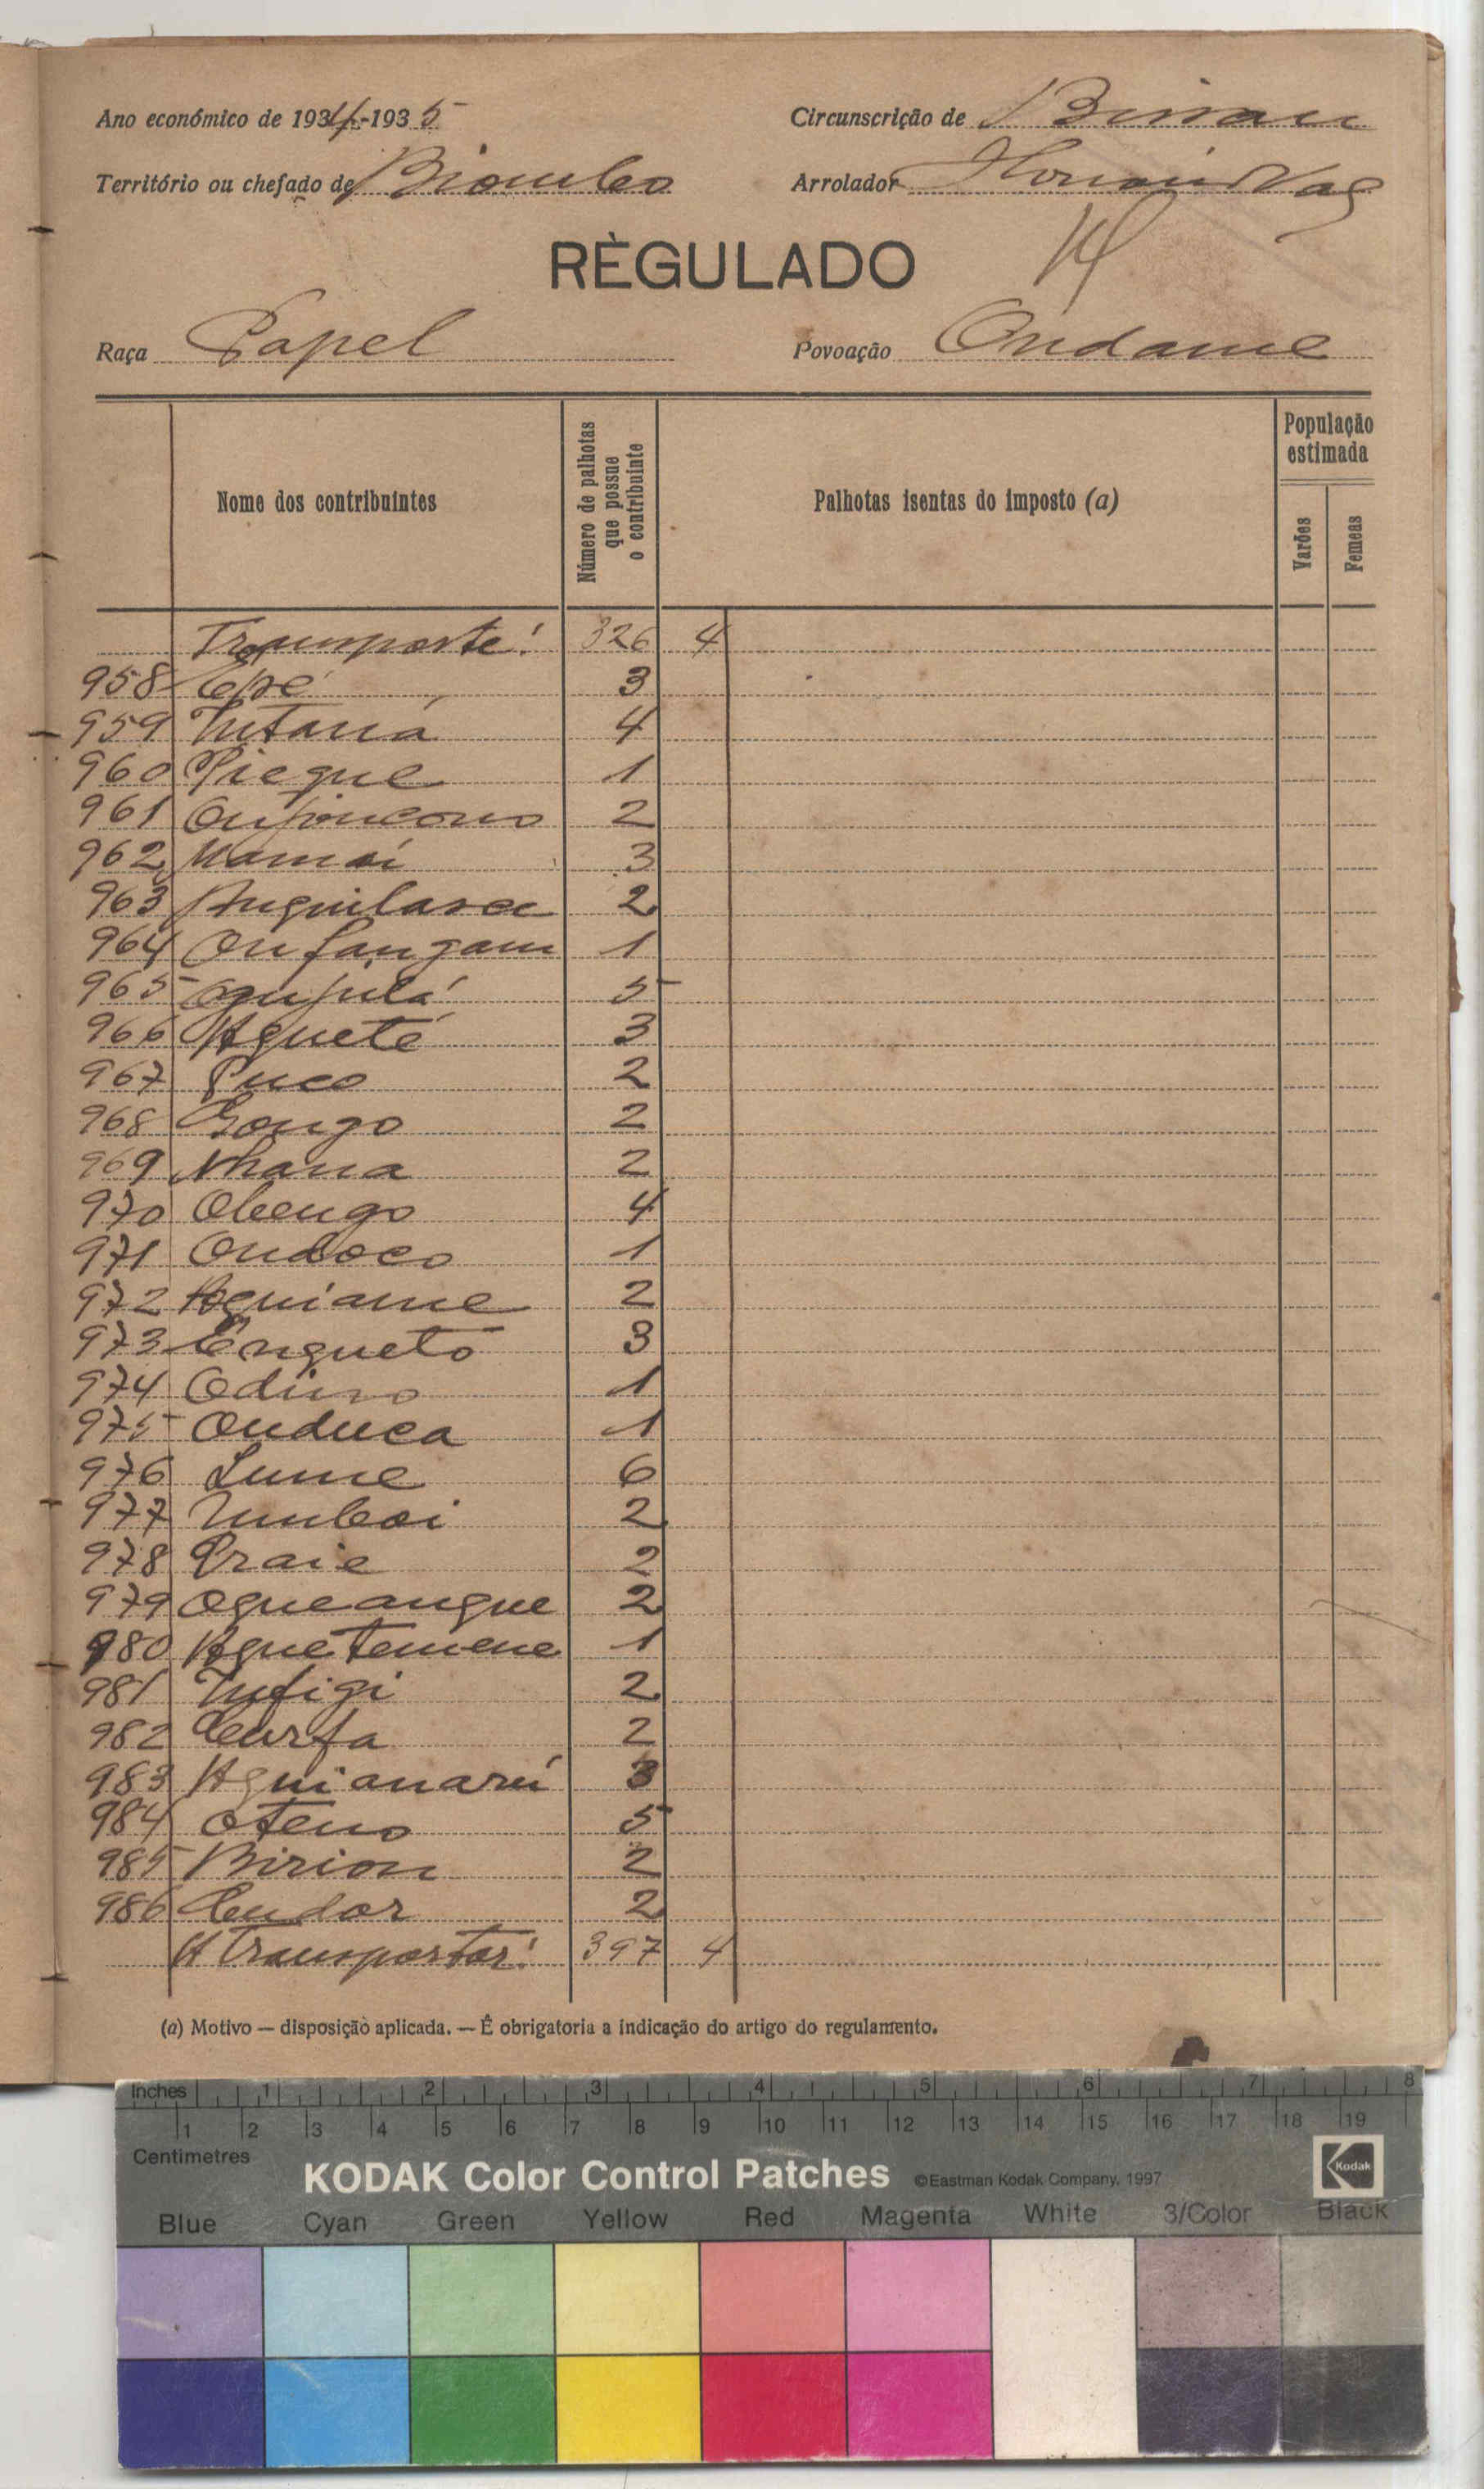 Ano económico de 1934-1935
Circunscrição de Bissau
Território ou chefado de Biombo
Arrolador Vaz
RÈGULADO
Raça Papel
Povoação Ondame
Nome dos contribuintes
Número de palhotas que possue o contribuinte
Palhotas isentas do imposto (a)
População estimada
Varões
Femeas
Transporte: 326 4
958 Cpé 3
959 Intaná 4
960 Pieque 1
961 2
962 Mamai 3
963 2
964 Onfangam 1
965 5
966 Agueté 3
967 Puco 2
968 Gongo 2
969 Nhana 2
970 Obengo 4
971 Ondoco 1
972 Aguiame 2
973 Enqueto 3
974 1
975 Onduca 1
976 Lume 6
977 Umboi 2
978 Praie 2
979 Ogueangue 2
980 Aguetemene 1
981 Infigi 2
982 2
983 Aguianarú 3
984 Oteno 5
985 Birion 2
986 2
A transportar: 397 4
(a) Motivo — disposição aplicada. — É obrigatoria a indicação do artigo do regulamento.
Inches 1 2 3 4 5 6 7 8
1 2 3 4 5 6 7 8 9 10 11 12 13 14 15 16 17 18 19
Centimetres
KODAK Color Control Patches ©Eastman Kodak Company, 1997 Kodak
Blue Cyan Green Yellow Red Magenta White 3/Color Black